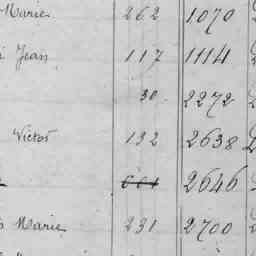 Marie 262 1070
Jean 117 1114
30 2272
Victor 132 2638
601 2646
Marie 231 2700